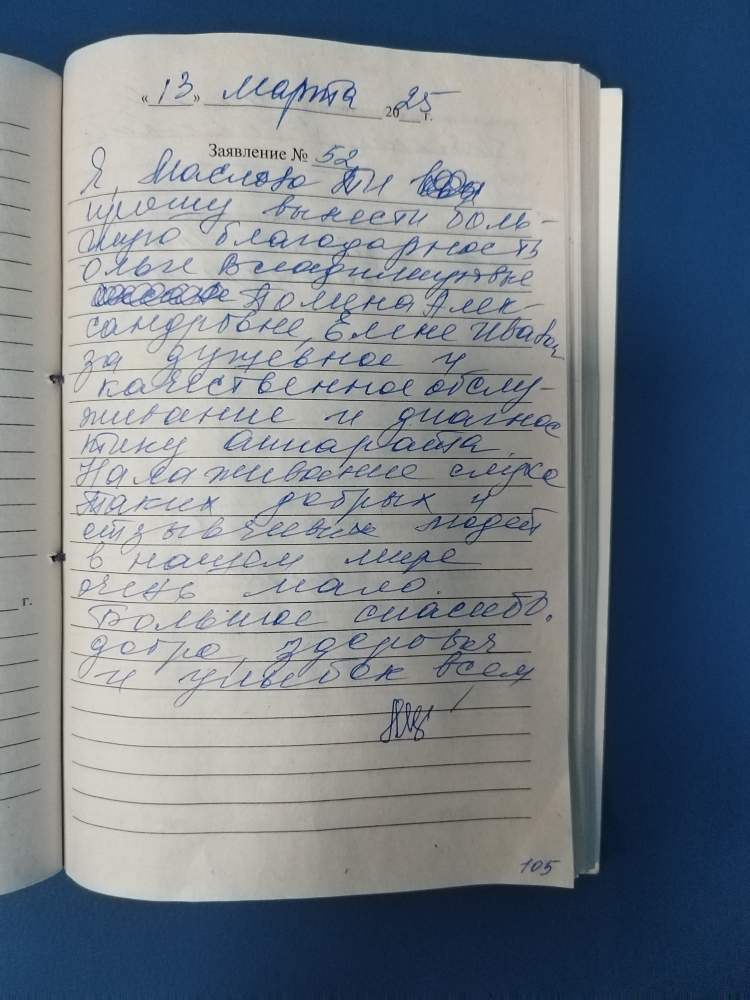 « 13 » марта 20 25 г.
Заявление № 52
Я, Маслова
прошу вынести боль-
шую благодарность
Ольге Владимировне
Полина Алек-
сандровне, Елене Иван
за душевное и
качественное обслу-
живание и диагнос
тику аппарата.
Налаживание слуха
Таких добрых и
отзывчивых людей
в нашем мире
очень мало.
Большое спасибо,
добра, здоровья
и улыбок всем!
г.
105